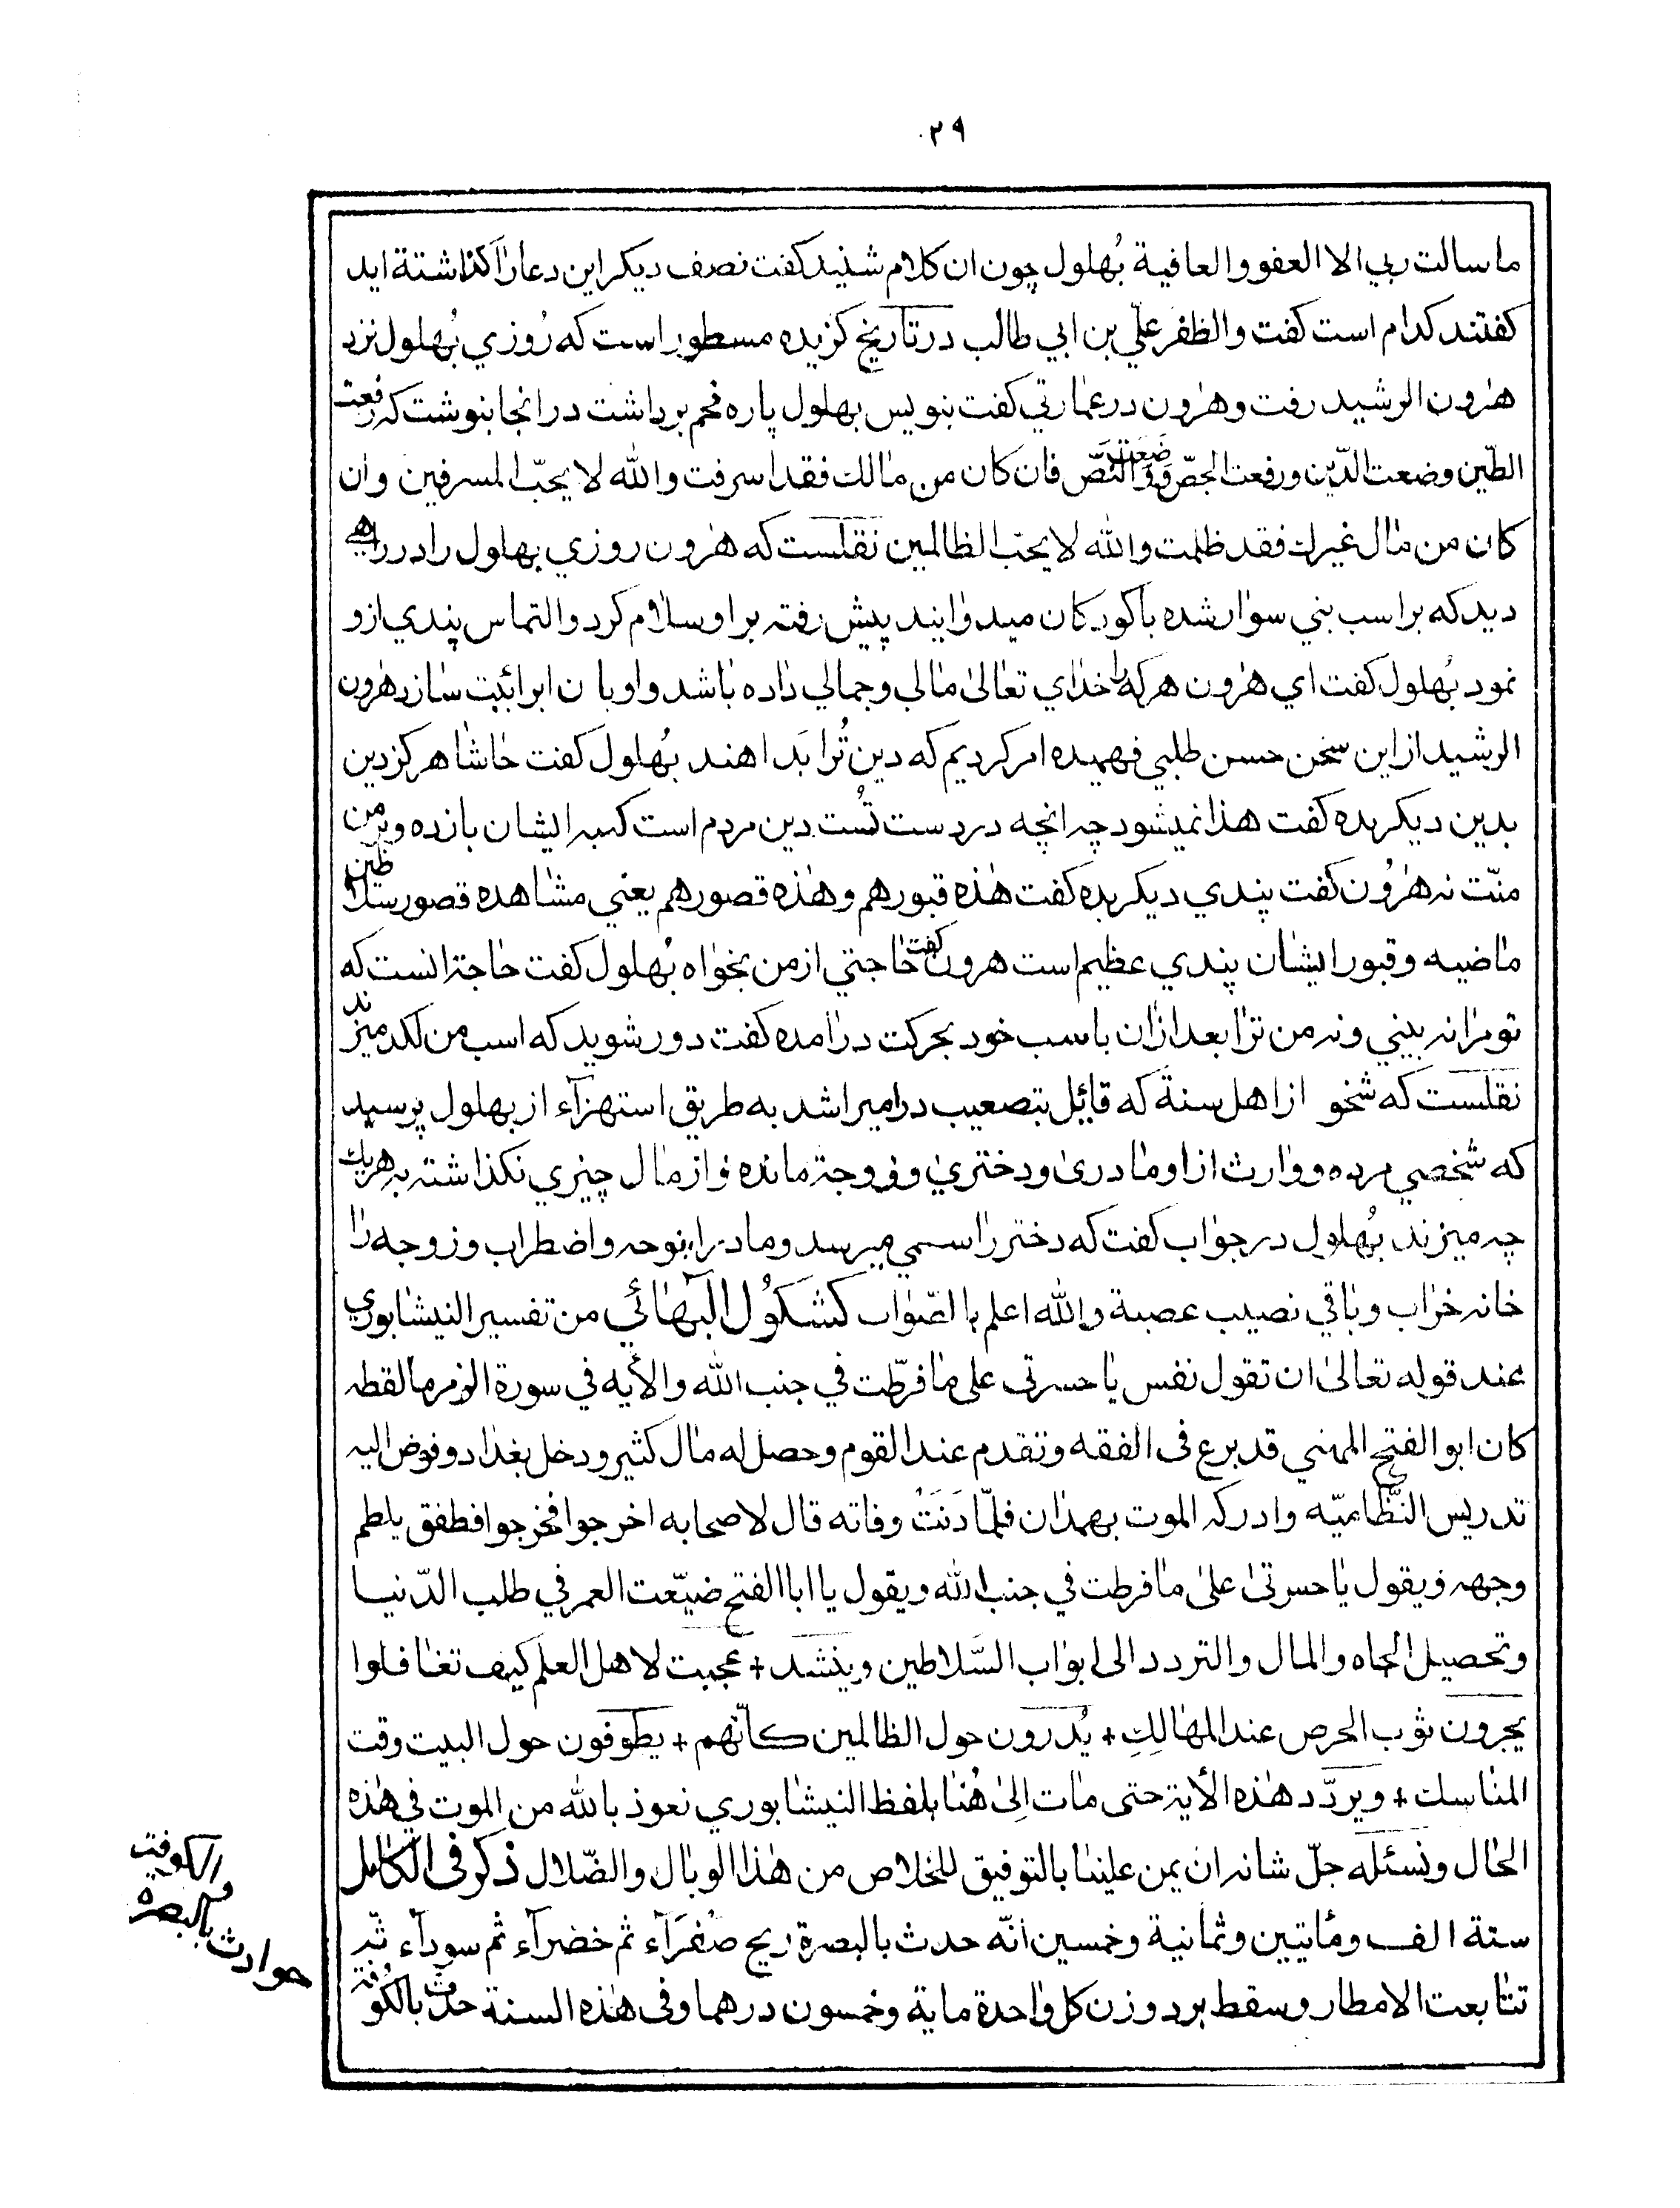 ٢٩٠
ما سالت ربي الا العفو والعافية بُهلول چون ان كلام شنيد كفت نصف ديكر اين دعا را كذاشتة ايد
كفتند كدام است كفت والظفر علّي بن ابي طالب در تاريخ كزيده مسطور است كه رُوزي بُهلول نزد
هٰرون الرشيد رفت وهٰرون در عمٰارتي كفت بنويس بهلول پاره فحم برداشت در انجا بنوشت كه رفعت
الطّين وضعت الدّين ورفعت الجصّ ووضَعَت النّصّ فان كان من مٰالك فقد اسرفت والله لا يحبّ المسرفين وان
كان من مٰال غيرك فقد ظلمت والله لا يحبّ الظالمين نقلست كه هٰرون روزي بهلول را در راهي
ديد كه بر اسب بني سوٰار شده با كودكان ميدوٰانيد پيش رفته بر او سلٰام كرد والتماس پندي از و
نمود بُهلول كفت اي هٰرون هر كه را خدٰاي تعٰالىٰ مٰالي وجمالي دٰاده بٰاشد واو بان ابرا ئيت سٰازد هٰرون
الرشيد از اين سخن حسن طلبي فهميده امر كرديم كه دين تُرا بَد اهند بُهلول كفت حٰاشٰا هركز دين
بدين ديكر بده كفت هذا نميشود چه انچه در دست تُست دين مردم است كه به ايشان بازده وبر من
منّت نه هٰرُون كفت پندي ديكر بده كفت هٰذه قبورهم وهٰذه قصورهم يعني مشٰاهده قصور سلاطين
مٰاضيه وقبور ايشٰان پندي عظيم است هرون كفت حٰاجتي از من بخوٰاه بُهلول كفت حٰاجة انست كه
تو مرٰا نه بيني ونه من ترٰا بعد ازٰان با سب خود بحركت درٰامده كفت دور شويد كه اسب من لكد ميزند
نقلست كه شخو از اهل سنة كه قائل بتصعيب در اميرا شد به طريق استهزآء از بهلول پرسيد
كه شخصي مرده ووارث از او مٰادرىٰ ودختريٰ وزوجة مانده واز مٰال چيزي نكذاشته به هريك
چه ميزند بُهلول در جوٰاب كفت كه دختر رٰا سمي ميرسد ومادر را بنوحه واضطراب وزوجه رٰا
خانه خرٰاب وبٰاقي نصيب عصبة والله اعلم با الصّوٰاب كشكوُل البَهٰائي من تفسير النيشٰابوري
عند قوله تعٰالىٰ ان تقول نفس يٰا حسرتي على مٰا فرّطت في جنب الله والأيه في سورة الزمر مٰا لفظه
كان ابو الفتح المهني قد برع فى الفقه وتقدم عند القوم وحصل له مٰال كثير ودخل بغدٰاد وفوض اليه
تدريس النّظٰاميّه وادركه الموت بهمدٰان فلمّا دَنَتْ وفاته قال لاصحابه اخرجوا فخرجوا فطفق يلطم
وجهه ويقول يٰا حسرتىٰ علىٰ مٰا فرطت في جنب الله ويقول يا ابا الفتح ضيّعت العمر في طلب الدّنيا
وتحصيل الجٰاه والمال والتردد الى ابوٰاب السَّلاطين وينشد + عجبت لاهل العلم كيف تغٰافلوا
يجرون ثوب الحرص عند المهٰالِكِ + يُدَرون حول الظالمين كأنّهم + يطوفون حول البيت وقت
المنٰاسك + ويردّد هٰذه الأية حتى مٰات الِىٰ هُنٰا بلفظ النيشٰابوري نعوذ بالله من الموت في هٰذه
الحٰال ونسئله جلّ شانه ان يمن علينٰا بالتوفيق للخلاص من هٰذا الوبٰال والضّلال ذكر فى الكٰامل
ستة الف ومأتيين وثمٰانية وخمسين انّه حدث بالبصرة ريح صُفرَآء ثم خضرآء ثم سودآء ثم
تتٰابعت الامطار وسقط برد وزن كل وٰاحدة ماية وخمسون درهما وفى هٰذه السنة حدث بالكُوفة
حوادث بالبصره
والكوفة